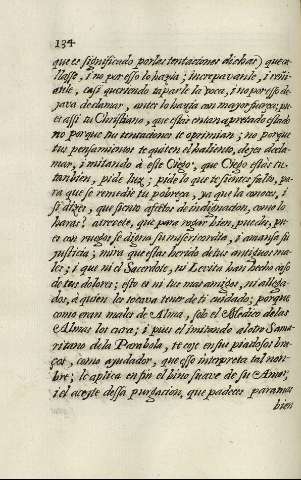 134
que es significado por las tentaciones dichas) que ca-
llasse, i no por esso lo hazia; increpavanle, i reñi-
anle, casi queriendo taparle la voca, i no por esso de-
java de clamar, antes lo hazia con mayor fuerça; pu-
es assi tu Christiano, que estás en tan apretado estado
no porque tus tentaciones te oprimian; no porque
tus pensamientos te quiten el haliento, dejes de cla-
mar, i imitando à este Ciego, que Ciego estás tu-
tambien, pide luz; pide lo que te sientes falto, pa-
ra que se remedie tu pobreza, ya que la conoces, i
si dizes, que siento afectos de indignacion, como lo
haras? atrevete, que para rogar bien, puedes, pu-
es con ruegos se digna su misericordia, i amansa su
justicia; mira que estas herido de tus antiguos ma-
les; i que ni el Sacerdote, ni Levita han hecho caso
de tus dolores; esto es ni tus mas amigos, ni allega-
dos, à quien les tocava tener de ti cuidado; porque
como eran males de Alma, solo el Medico de las
Almas los cura; i pues el imitando al otro Samar-
ritano de la Parabola, te coje en sus piadosos bra-
ços, como ayudador, que esso interpreta tal nom-
bre; le aplica en fin el bino suave de su Amor,
i el aceyte dessa purgacion, que padeces paramas
bien